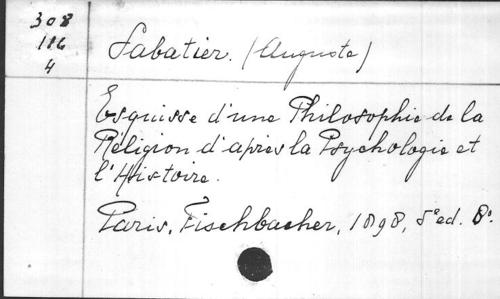 308
116
4
Sabatier. (Auguste)
Esquisse d'une Philosophie de la
Religion d'après la Psychologie et
l'Histoire.
Paris, Fischbacher, 1898, 5e ed. 8º